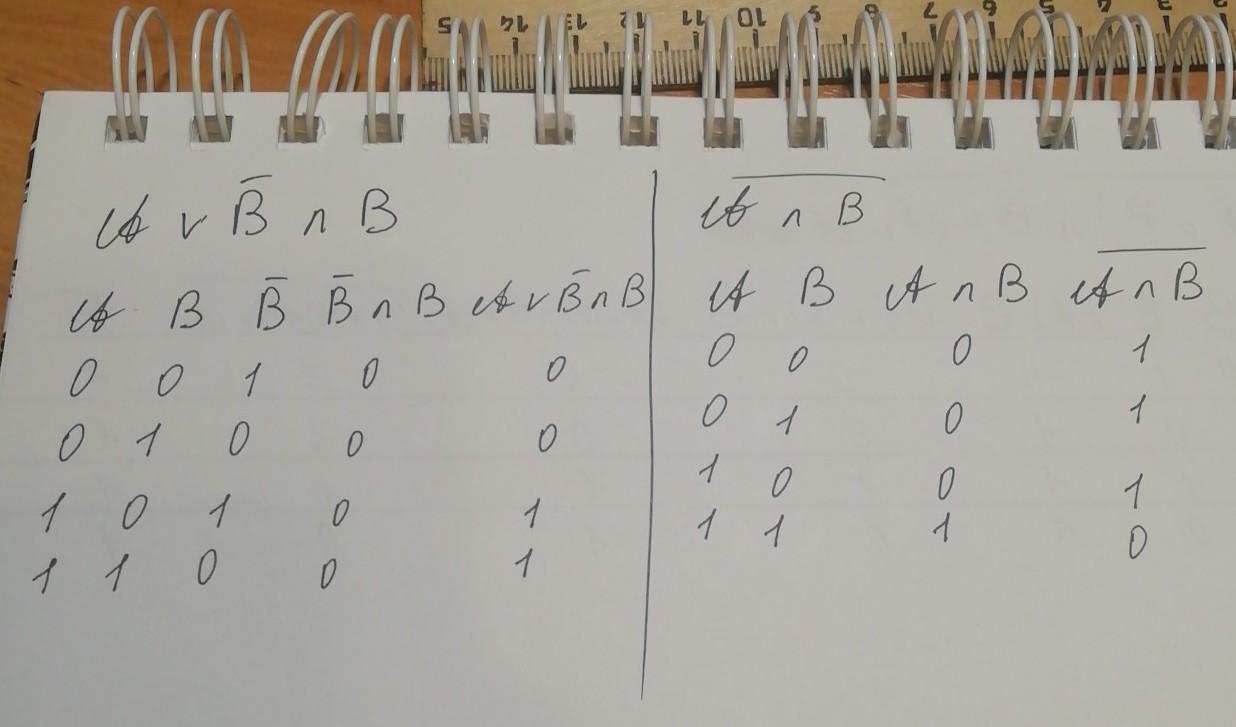 15 14 13 12 11 10 9 8 7 6 5 4 3 2
A ∨ B̅ ∧ B
A B B̅ B̅ ∧ B A ∨ B̅ ∧ B
0 0 1 0 0
0 1 0 0 0
1 0 1 0 1
1 1 0 0 1
A̅ ̅∧̅ ̅B̅
A B A ∧ B A̅ ̅∧̅ ̅B̅
0 0 0 1
0 1 0 1
1 0 0 1
1 1 1 0